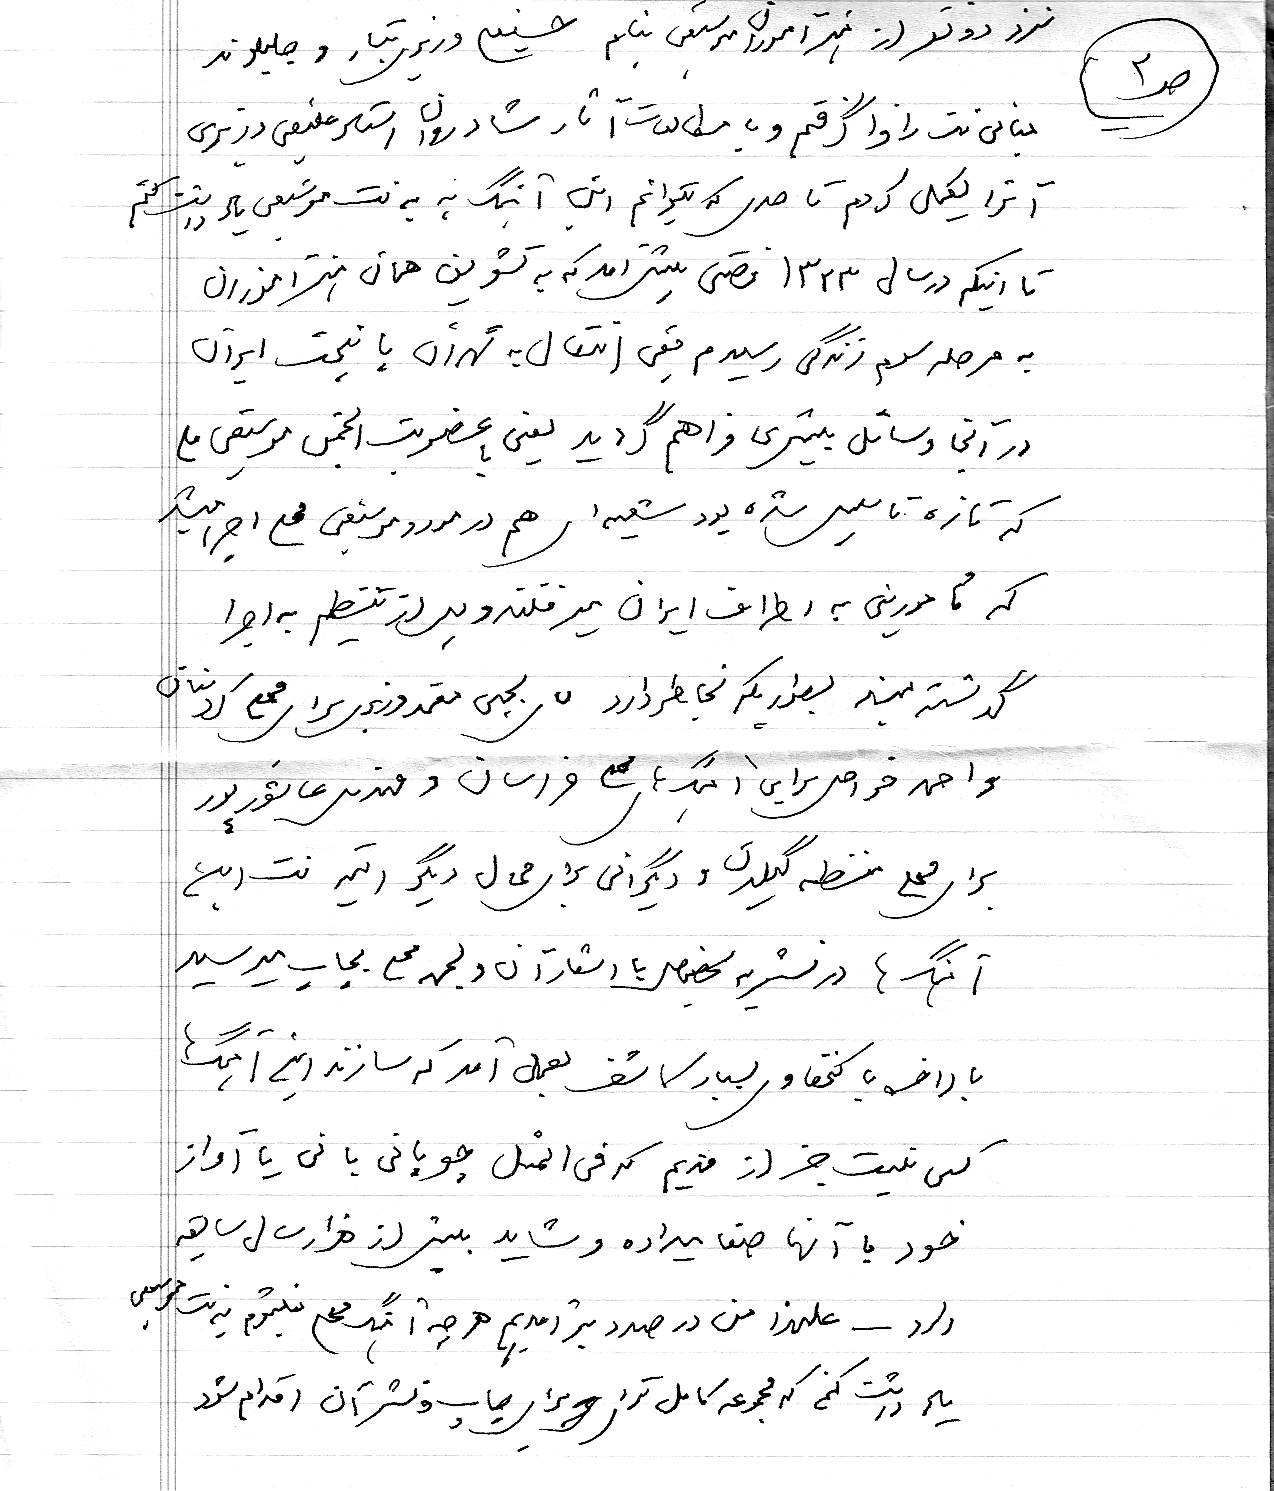 ص ۲
نزد دو نفر از هنرآموزان موسیقی بنام حسینعلی وزیری تبار و جلیلوند
مبانی نت را فرا گرفتم و با مطالعات آثار شادروان استاد علینقی وزیری
آنرا تکمیل کردم تا حدی که بتوانم این آهنگ به نت موسیقی یادداشت کنم
تا اینکه در سال ۱۳۲۳ فرصتی پیش آمد که به تشویق همان هنرآموزان
به مرحله سوم زندگی رسیدم یعنی انتقال به تهران پایتخت ایران
در آنجا وسائل بیشتری فراهم گردید یعنی با عضویت انجمن موسیقی ملی
که تازه تاسیس شده بود شعبه ای هم در مورد موسیقی محلی اجرا میشد
که مامورینی به اطراف ایران میرفتند و پس از تنظیم به اجرا
گذشته میشد بطوریکه بخاطر دارد یحیی معتمد وزیری برای محلی کردستان
و احمد برای آهنگ های محلی خراسان و مهندس عاشورپور
برای محلی منطقه گیلان و دیگرانی برای محال دیگر البته نت این
آهنگ ها در نشریه مخصوص با اشعار آن و لهجه محلی بچاپ میرسید
بالاخره با کنجکاوی بسیار کاشف بعمل آمد که سازنده این آهنگها
کسی نیست جز از قدیم که فی المثل چوپانی با نی یا آواز
خود با آنها صفا میداده و شاید بیش از هزار سال سابقه
دارد – علیهذا من در صدد برآمدیم هر چه آهنگ محلی بشنوم به نت موسیقی
یادداشت کنم که مجموعه کامل برای چاپ و نشر آن اقدام شود